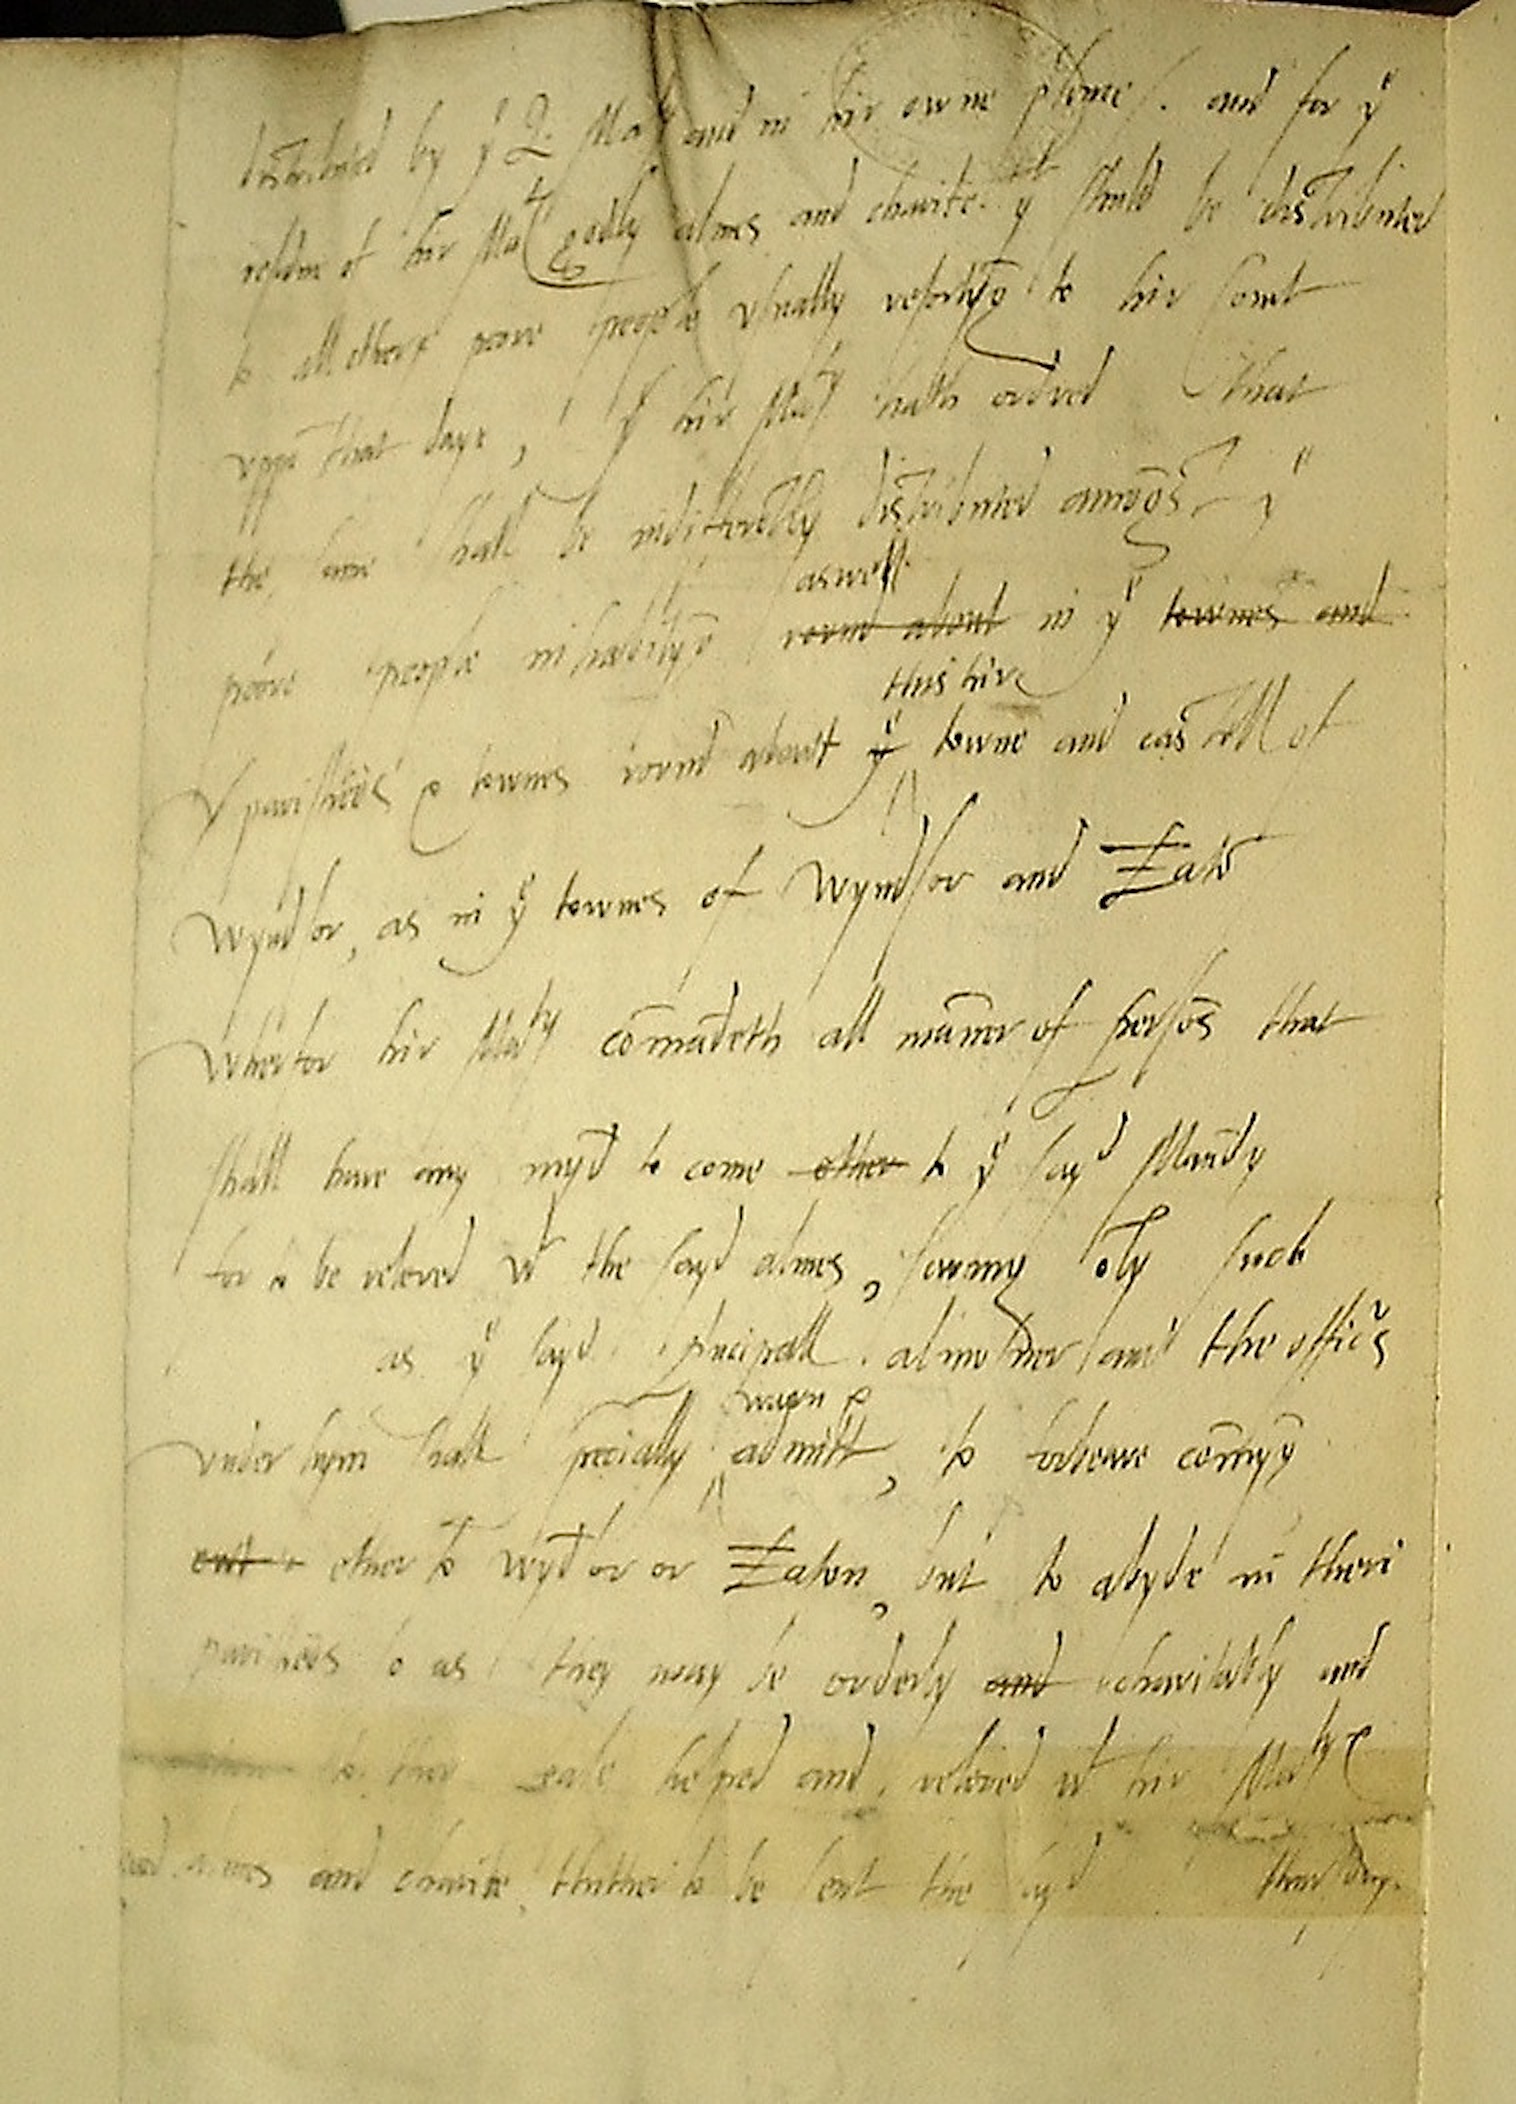 distributed by yͤ Q. Maty and in hir owne p'sence. and for yͤ
residue of hir Maty godly almes and charite. yt shuld be distributed
to all other poore people vsually resortyḡ to hir Court
vppō that daye, yͤ hir Maty hath ordred that
the same shall be indifferētly distributed amōgst yͤ
aswell
poore people inhabityḡ round about in yͤ townes and
this hir
yͤ parishēs & townes round about yͤ towne and castell of
Wyndsor, as in yͤ townes of Wyndsor and Eatō
Wherfor hir Maty cōmādeth all māner of persōs that
shall have any myd̄ to come other to yͤ sayd Maūdy
for to be releved wt the sayd almes, savyng ōly such
as yͤ sayd p'ncipall almosner and the officrs
warn &
vnder hym shall specially admitt, to forbeare cōmyg̃
out ether to Wyd̄sor or Eaton, but to abyde in there
parishēs so as they may be orderly and charitably and
to ther ease helped and releved wt hir Matys
almes and charite, thither to be sent the sayd thursday.